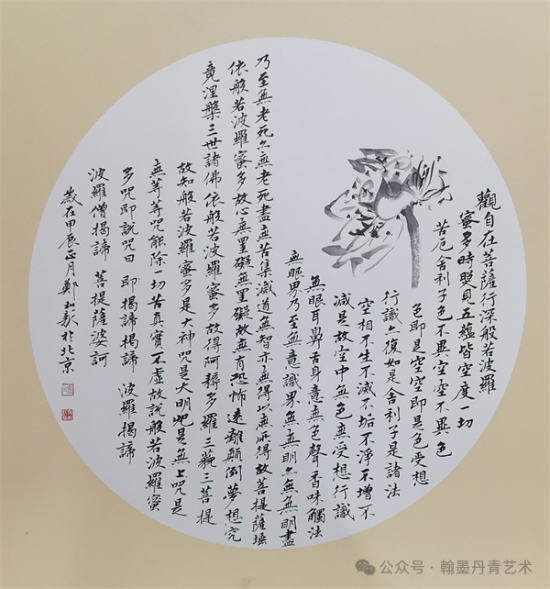 觀自在菩薩行深般若波羅
蜜多時照見五蘊皆空度一切
苦厄舍利子色不異空空不異色
色即是空空即是色受想
行識亦復如是舍利子是諸法
空相不生不滅不垢不淨不增不
減是故空中無色無受想行識
無眼耳鼻舌身意無色聲香味觸法
無眼界乃至無意識界無無明亦無無明盡
乃至無老死亦無老死盡無苦集滅道無智亦無得以無所得故菩提薩埵
依般若波羅蜜多故心無罣礙無罣礙故無有恐怖遠離顛倒夢想究
竟涅槃三世諸佛依般若波羅蜜多故得阿耨多羅三藐三菩提
故知般若波羅蜜多是大神咒是大明咒是無上咒是
無等等咒能除一切苦真實不虛故說般若波羅蜜
多咒即說咒曰 即揭諦揭諦 波羅揭諦
波羅僧揭諦 菩提薩婆訶
歲在甲辰正月鄭 於北京
公众号·翰墨丹青艺术